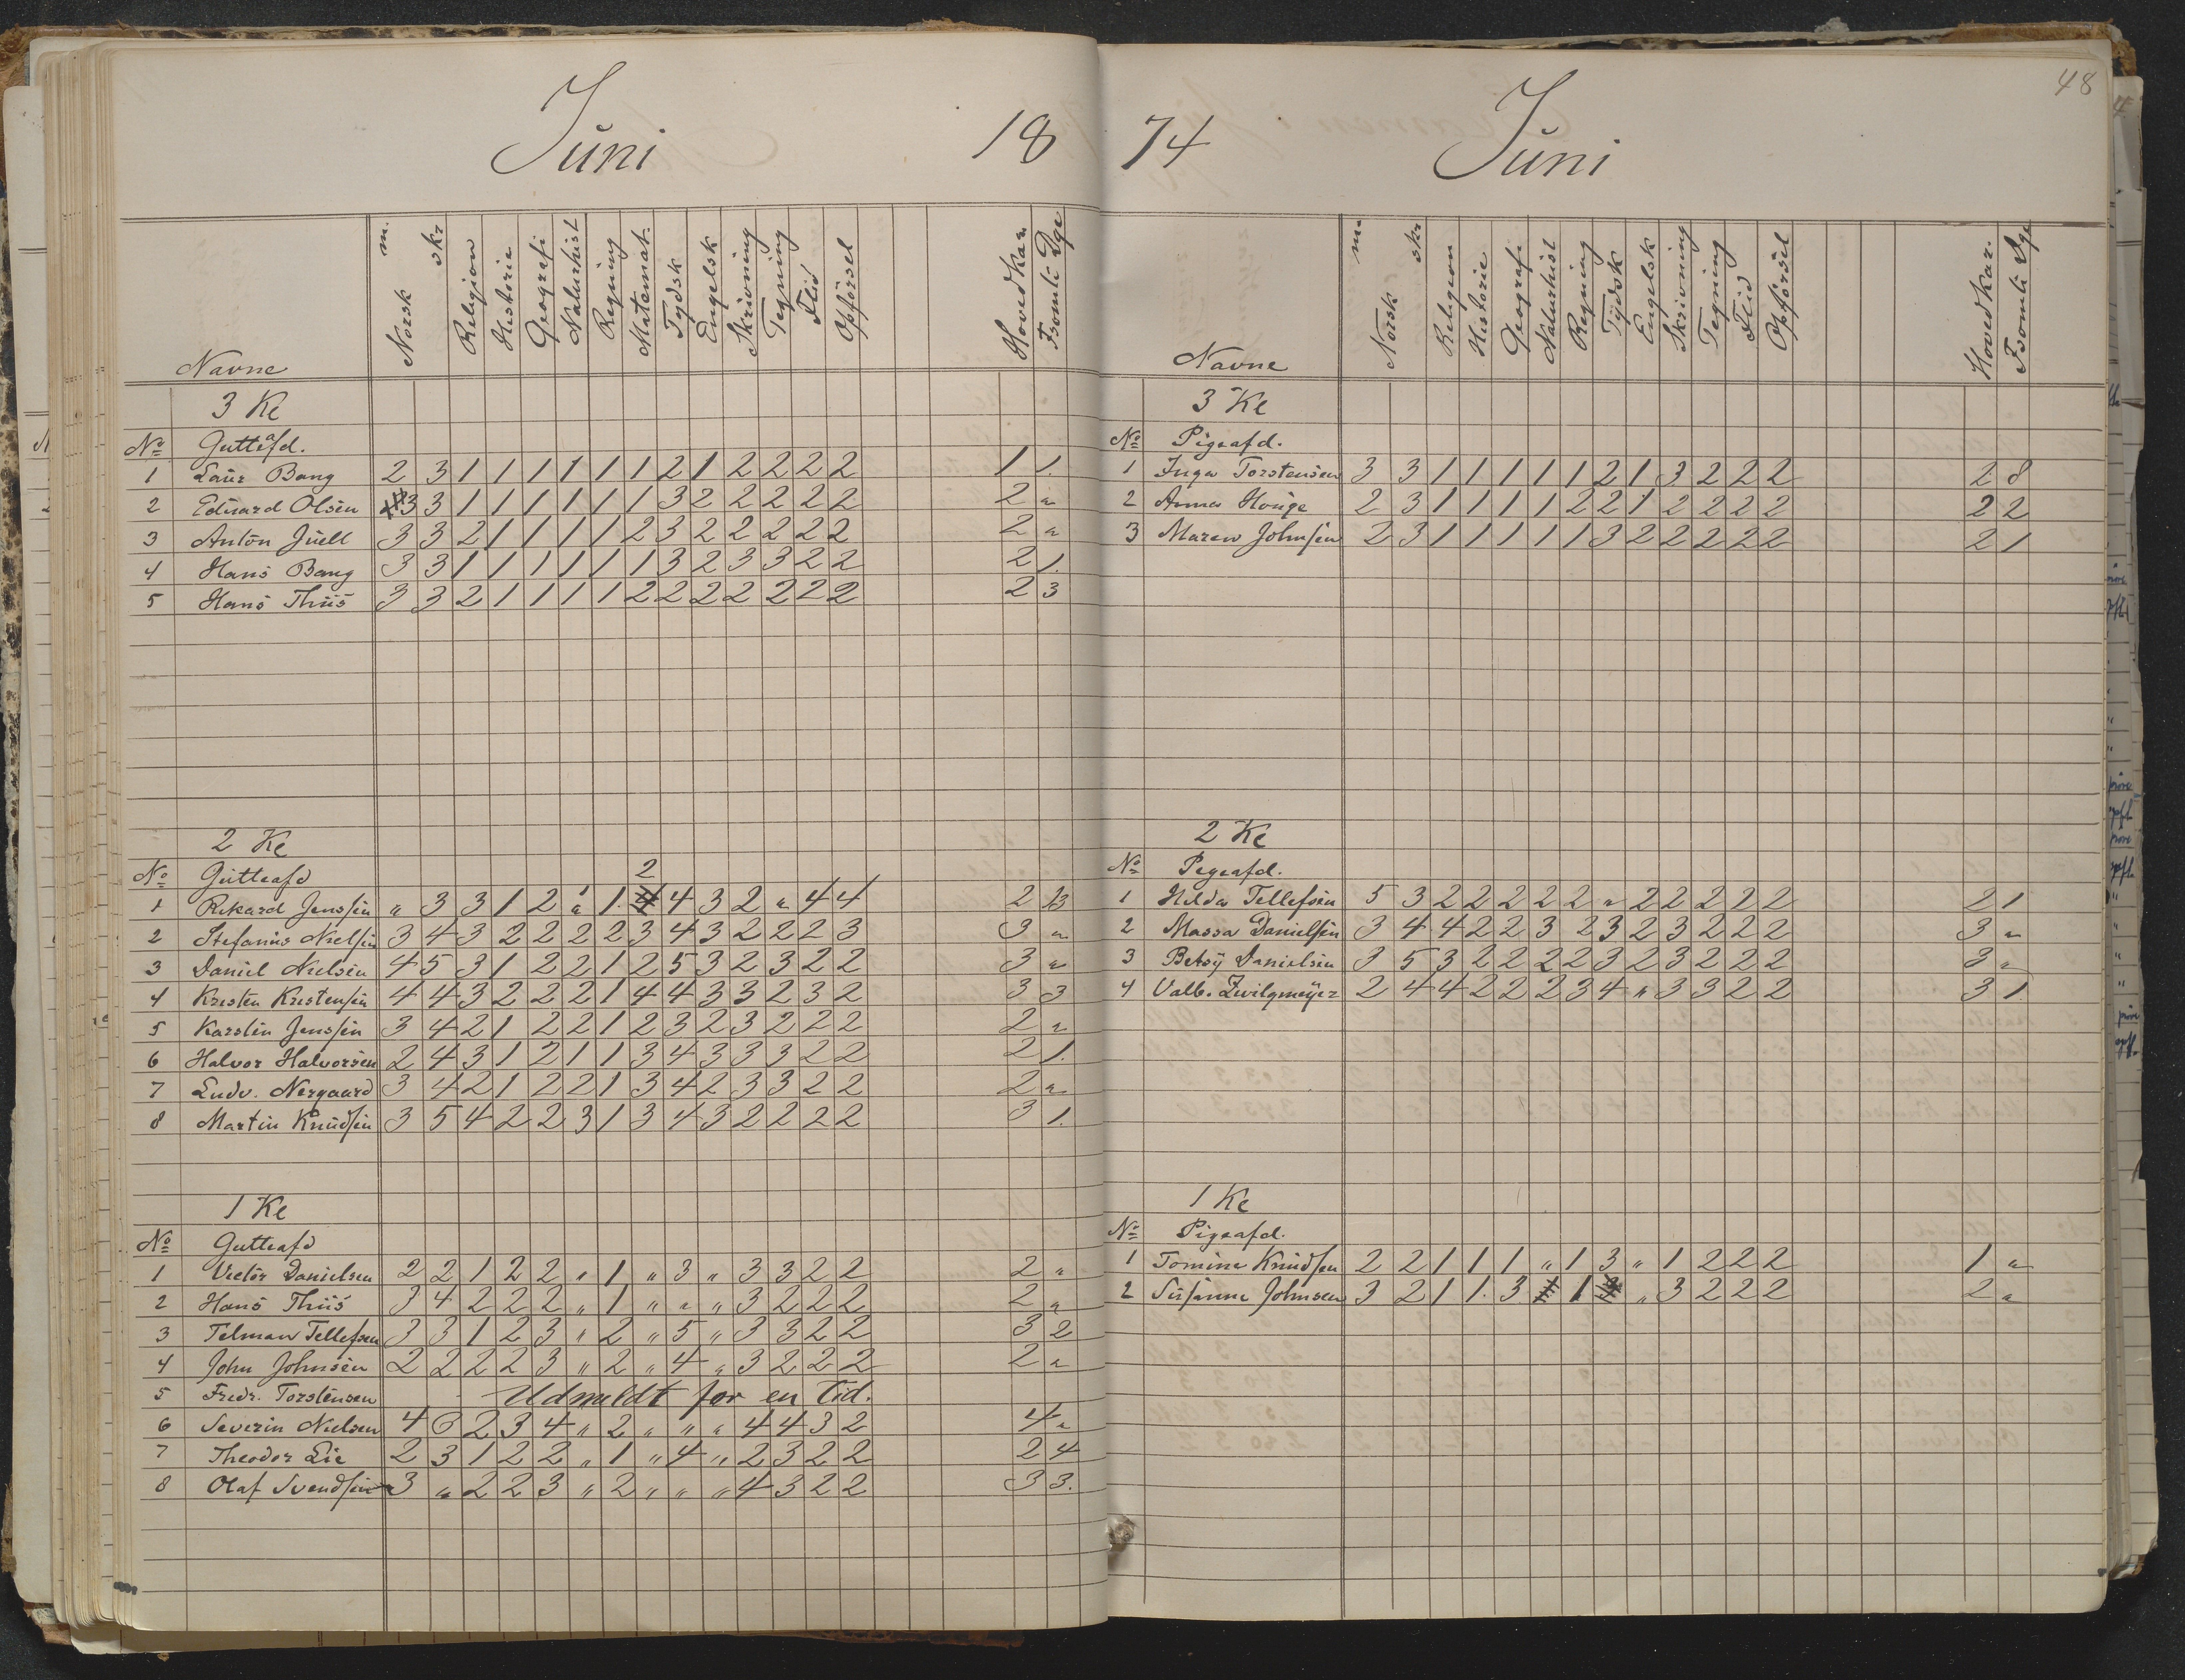 Juni 18
Navne Norsk m. skr Religion Historie Geografi Naturhist Regning Matemat. Tydsk Engelsk Skrivning Tegning Flid Opførsel Hovedkar. Fsomte Dge
3 Kl
No Gutteafd.
1 Laur Bang 2 3 1 1 1 1 1 1 2 1 2 2 2 2 1 1.
2 Eduard Olsen 3 3 1 1 1 1 1 1 3 2 2 2 2 2 2 "
3 Anton Juell 3 3 2 1 1 1 1 2 3 2 2 2 2 2 2 "
4 Hans Bang 3 3 1 1 1 1 1 1 3 2 3 3 2 2 2 1.
5 Hans Thiis 3 3 2 1 1 1 1 2 2 2 2 2 2 2 2 3
2 Kl
No Gutteafd 2
1 Rikard Jenssen " 3 3 1 2 " 1. 4 4 3 2 " 4 4 2 13
2 Stefanus Nielsen 3 4 3 2 2 2 2 3 4 3 2 2 2 3 3 "
3 Daniel Nielsen 4 5 3 1 2 2 1 2 5 3 2 3 2 2 3 "
4 Kristen Kristensen 4 4 3 2 2 2 1 4 4 3 3 2 3 2 3 3
5 Karsten Jenssen 3 4 2 1 2 2 1 2 3 2 3 2 2 2 2 "
6 Halvor Halvorsen 2 4 3 1 2 1 1 3 4 3 3 3 2 2 2 1.
7 Ludv. Nergaard 3 4 2 1 2 2 1 3 4 2 3 3 2 2 2 "
8 Martin Knudsen 3 5 4 2 2 3 1 3 4 3 2 2 2 2 3 1.
1 Kl
No Gutteafd
1 Victor Danielsen 2 2 1 2 2 " 1 " 3 " 3 3 2 2 2 "
2 Hans Thiis 3 4 2 2 2 " 1 " " " 3 2 2 2 2 "
3 Telman Tellefsen 3 3 1 2 3 " 2 " 5 " 3 3 2 2 3 2
4 John Johnsen 2 2 2 2 3 " 2 " 4 " 3 2 2 2 2 "
5 Fredr. Torstensen Udmeldt for en tid.
6 Severin Nielsen 4 6 2 3 4 " 2 " " " 4 4 3 2 4 "
7 Theodor Lie 2 3 1 2 2 " 1 " 4 " 2 3 2 2 2 4
8 Olaf Svendsen 3 " 2 2 3 " 2 " " " 4 3 2 2 3 3.
48
74 Juni
Navne Norsk m. skr Religion Historie Geografi Naturhist Regning Tydsk Engelsk Skrivning Tegning Flid Opførsel Hovedkar. Fsomte Dge
3 Kl
No Pigeafd.
1 Inga Torstensen 3 3 1 1 1 1 1 2 1 3 2 2 2 2 8
2 Anna Houge 2 3 1 1 1 1 2 2 1 2 2 2 2 2 2
3 Maren Johnsen 2 3 1 1 1 1 1 3 2 2 2 2 2 2 1
2 Kl
No Pigeafd.
1 Hilda Tellefsen 5 3 2 2 2 2 2 " 2 2 2 2 2 2 1
2 Massa Danielsen 3 4 4 2 2 3 2 3 2 3 2 2 2 3 "
3 Betsy Danielsen 3 5 3 2 2 2 2 3 2 3 2 2 2 3 "
4 Valb. Zwilgmeyer 2 4 4 2 2 2 3 4 " 3 3 2 2 3 1
1 Kl
No Pigeafd.
1 Tomine Knudsen 2 2 1 1 1 " 1 3 " 1 2 2 2 1 "
2 Susanne Johnsen 3 2 1 1. 3 1 " 3 2 2 2 2 "